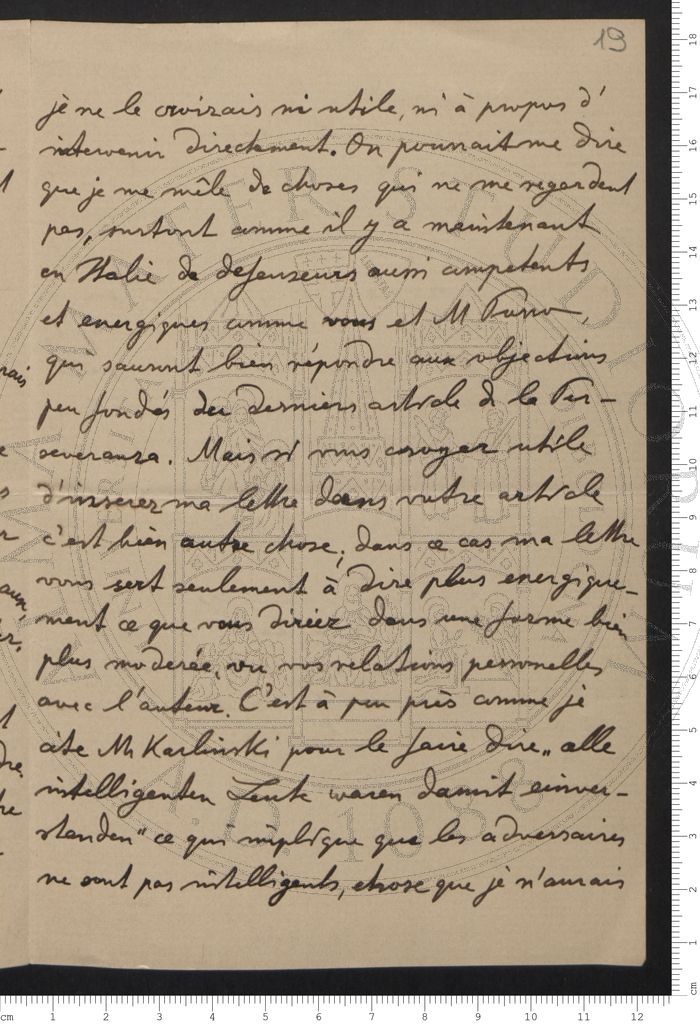 19
je ne le croirais ni utile, ni à propos d'
intervenir directement. On pourrait me dire
que je me mêle de choses qui ne me regardent
pas, surtout comme il y a maintenant
en Italie de defenseurs aussi competents
et energiques comme vous et M
qui sauront bien répondre aux objections
peu fondés du derniers article de la Per-
severanza. Mais si vous croyez utile
d'inserer ma lettre dans votre article
c'est bien autre chose; dans ce cas ma lettre
vous sert seulement à dire plus energique-
ment ce que vous diriez dans une forme bien
plus moderée, vu vos relations personelles
avec l'auteur. C'est à peu près comme je
cite Mr Karlinski pour le faire dire „alle
intelligenten Leute waren damit einver-
standen" ce qui implique que les adversaires
ne sont pas intelligents, chose que je n'aurais
ALMA MATER STUDIORUM
A.D. 1088